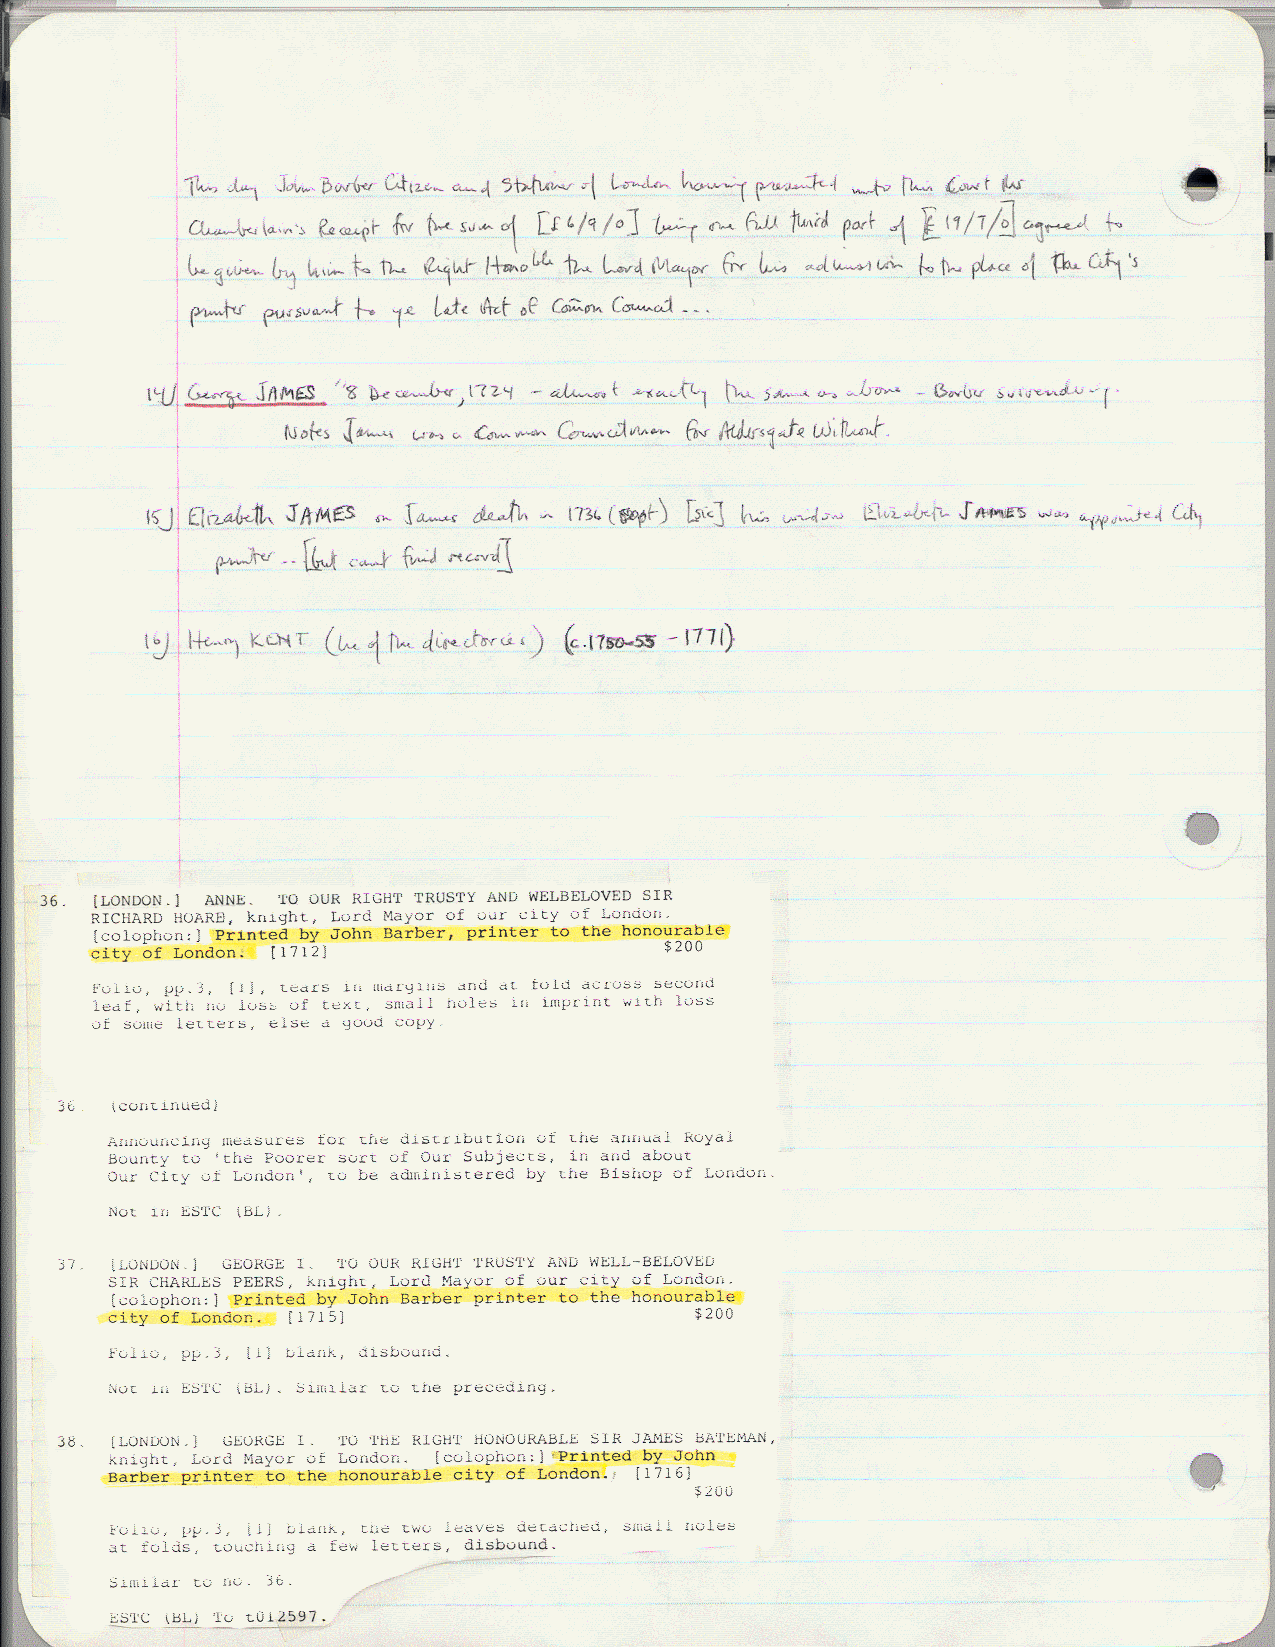 This day John Barber Citizen and Stationer of London having presented unto this Court the
Chamberlain's Receipt for the sum of [£6/9/0] being one full third part of [£19/7/0] agreed to
be given by him to the Right Honoble the Lord Mayor for his admission to the place of the City's
printer pursuant to ye late Act of Comon Council...
14) George JAMES "8 December, 1724 - almost exactly the same as above - Barber surrendering.
Notes James was a Common Councilman for Aldersgate Without.
15) Elizabeth JAMES on James death in 1736 (Sept) [sic] his widow Elizabeth JAMES was appointed City
printer .. [but cant find record]
16) Henry KENT (he of the directories) (c.1750-55 - 1771)
36. [LONDON.] ANNE. TO OUR RIGHT TRUSTY AND WELBELOVED SIR
RICHARD HOARE, knight, Lord Mayor of our city of London.
[colophon:] Printed by John Barber, printer to the honourable
city of London. [1712] $200
Folio, pp.3, [1], tears in margins and at fold across second
leaf, with no loss of text, small holes in imprint with loss
of some letters, else a good copy.
36 (continued)
Announcing measures for the distribution of the annual Royal
Bounty to 'the Poorer sort of Our Subjects, in and about
Our City of London', to be administered by the Bishop of London.
Not in ESTC (BL).
37. [LONDON.] GEORGE I. TO OUR RIGHT TRUSTY AND WELL-BELOVED
SIR CHARLES PEERS, knight, Lord Mayor of our city of London.
[colophon:] Printed by John Barber printer to the honourable
city of London. [1715] $200
Folio, pp.3, [1] blank, disbound.
Not in ESTC (BL). Similar to the preceding.
38. [LONDON.] GEORGE I. TO THE RIGHT HONOURABLE SIR JAMES BATEMAN,
knight, Lord Mayor of London. [colophon:] Printed by John
Barber printer to the honourable city of London. [1716]
$200
Folio, pp.3, [1] blank, the two leaves detached, small holes
at folds, touching a few letters, disbound.
Similar to no. 36.
ESTC (BL) To t012597.